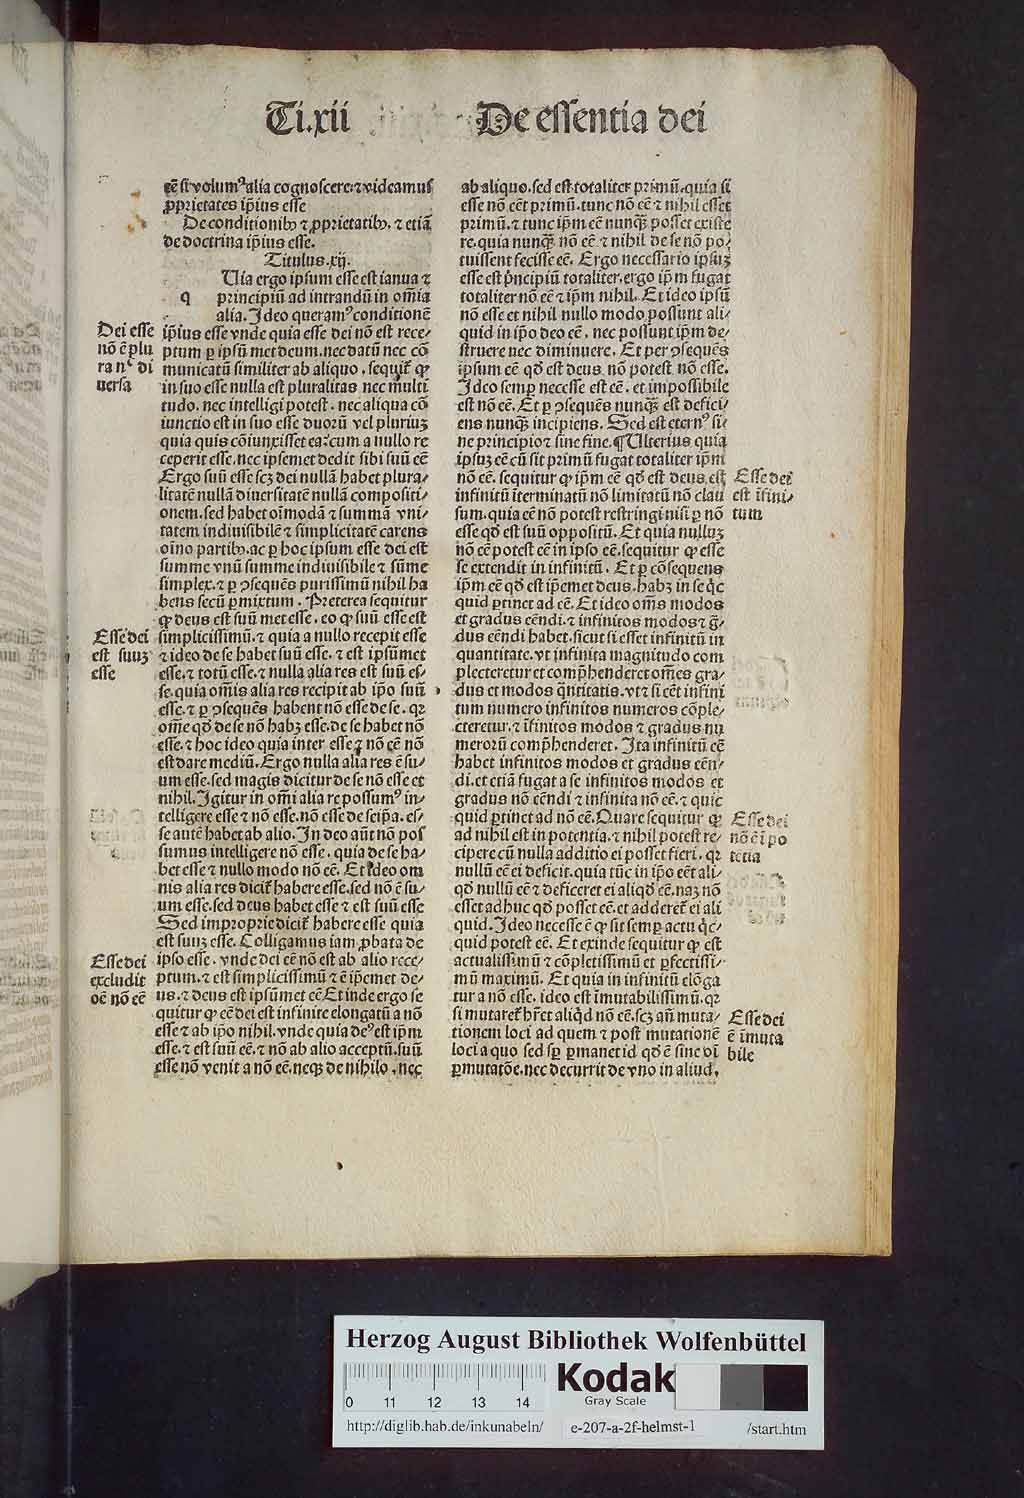 Ti.xii De essentia dei
eē si volumꝰ alia cognoscere: ⁊ videamus
ꝓprietates ip̄ius esse
De conditionibꝫ ⁊ ꝓprietatibꝫ. ⁊ etiā
de doctrina ip̄ius esse.
Titulus .xij.
Uia ergo ipsum esse est ianua ⁊
q principiū ad intrandū in om̄ia
alia. Ideo queramꝰ conditionē
Dei esse
nō ē plu
ra nᶜ di
uersa
ip̄ius esse vnde quia esse dei nō est rece/
ptum ꝑ ipsū met deum. nec datū nec cō
municatū similiter ab aliquo. sequit̃ ꝙ
in suo esse nulla est pluralitas nec multi
tudo. nec intelligi potest. nec aliqua cō
iunctio est in suo esse duorū vel pluriuꝫ
quia quis cōiunxisset ea: cum a nullo re
ceperit esse. nec ipsemet dedit sibi suū eē
Ergo suū esse scꝫ dei nullā habet plura/
litatē nullā diuersitatē nullā compositi/
onem. sed habet oīmodā ⁊ summā vni/
tatem indiuisibilē ⁊ simplicitatē carens
oīno partibꝫ. ac ꝑ hoc ipsum esse dei est
summe vnū summe indiuisibile ⁊ sūme
simplex. ⁊ ꝑ ↄsequēs purissimū nihil ha
bens secū ꝑmixtum. Preterea sequitur
ꝙ deus est suū met esse. eo ꝙ suū esse est
Esse dei
est suuꝫ
esse
simplicissimū. ⁊ quia a nullo recepit esse
⁊ ideo de se habet suū esse. ⁊ est ipsū met
esse. ⁊ totū esse. ⁊ nulla alia res est suū es/
se. quia om̄is alia res recipit ab ip̄o suū
esse. ⁊ ꝑ ↄsequēs habent nō esse de se. qꝛ
om̄e qd̄ de se nō habꝫ esse. de se habet nō
esse. ⁊ hoc ideo quia inter esse ⁊ nō eē nō
est dare mediū. Ergo nulla alia res ē su/
um esse. sed magis dicitur de se nō esse et
nihil. Igitur in om̄i alia re possumꝰ in/
telligere esse ⁊ nō esse. nō esse de seip̄a. es/
se autē habet ab alio. In deo aūt nō pos
sumus intelligere nō esse. quia de se ha/
bet esse ⁊ nullo modo nō eē. Et ideo om
nis alia res dicit̃ habere esse. sed nō ē su/
um esse. sed deus habet esse ⁊ est suū esse
Sed improprie dicit̃ habere esse quia
est suuꝫ esse. Colligamus iam ꝓbata de
Esse dei
excludit
oē nō eē
ipso esse. vnde dei eē nō est ab alio rece/
ptum. ⁊ est simplicissimū ⁊ ē ip̄emet de/
us. ⁊ deus est ipsūmet eē Et inde ergo se
quitur ꝙ eē dei est infinite elongatū a nō
esse ⁊ ab ip̄o nihil. vnde quia deꝰ est ip̄m
esse. ⁊ est suū eē. ⁊ nō ab alio acceptū. suū
esse nō venit a nō eē. neqꝫ de nihilo. nec
ab aliquo. sed est totaliter primū. quia si
esse nō eēt primū. tunc nō eē ⁊ nihil esset
primū. ⁊ tunc ip̄m eē nunqꝫ̄ posset existe
re. quia nunqꝫ̄ nō eē ⁊ nihil de se nō po/
tuissent fecisse eē. Ergo necessario ipsuꝫ
esse est p̄ncipiū totaliter. ergo ip̄m fugat
totaliter nō eē ⁊ ip̄m nihil. Et ideo ipsū
nō esse et nihil nullo modo possunt ali/
quid in ip̄o deo eē. nec possunt ip̄m de/
struere nec diminuere. Et per ↄsequēs
ipsum eē qd̄ est deus nō potest nō esse.
Ideo semꝑ necesse est eē. et impossibile
est nō eē. Et ꝑ ↄsequēs nunqꝫ̄ est defici/
ens nunqꝫ̄ incipiens. Sed est eternꝰ si/
ne principio ⁊ sine fine. ¶Ulterius quia
ipsuꝫ eē cū sit primū fugat totaliter ip̄m
Esse dei
est īfini/
tum
nō eē. sequitur ꝙ ip̄m eē qd̄ est deus. est
infinitū īterminatū nō limitatū nō clau
sum. quia eē nō potest restringi nisi ꝑ nō
esse qd̄ est suū oppositū. Et quia nulluꝫ
nō eē potest eē in ipso eē. sequitur ꝙ esse
se extendit in infinitū. Et ꝑ cōsequens
ip̄m eē qd̄ est ip̄emet deus. habꝫ in se qͥc
quid ꝑtinet ad eē. Et ideo om̄s modos
et gradus eēndi. ⁊ infinitos modos ⁊ gͣ/
dus eēndi habet. sicut si esset infinitū in
quantitate. vt infinita magnitudo com
plecteretur et comp̄henderet om̄es gra/
dus et modos qͣntitatis. vt ⁊ si eēt infini
tum numero infinitos numeros cōple/
cteretur. ⁊ īfinitos modos ⁊ gradus nu
merorū comp̄henderet. Ita infinitū eē
habet infinitos modos et gradus eēn/
di. et etiā fugat a se infinitos modos et
gradus nō eēndi ⁊ infinita nō eē. ⁊ quic
Esse dei
nō ē ī po
tētia
quid ꝑtinet ad nō eē. Quare sequitur ꝙ
ad nihil est in potentia. ⁊ nihil potest re/
cipere cū nulla additio ei posset fieri. qꝛ
nullū eē ei deficit. quia tūc in ip̄o eēt ali/
qd̄ nullū eē ⁊ deficeret ei aliqd̄ eē. naꝫ nō
esset adhuc qd̄ posset eē. et adderet̃ ei ali
quid. Ideo necesse ē ꝙ sit semꝑ actu qͥc/
quid potest eē. Et exinde sequitur ꝙ est
actualissimū ⁊ cōpletissimū et ꝑfectissi/
mū maximū. Et quia in infinitū elōga
tur a nō esse. ideo est īmutabilissimū. qꝛ
Esse dei
ē īmuta
bile
si mutaret̃ hr̄et aliqd̄ nō eē. scꝫ an̄ muta/
tionem loci ad quem ⁊ post mutationē
loci a quo sed sꝑ ꝑmanet id qd̄ ē sine oī
ꝑmutatōe. nec decurrit de vno in aliud.
Herzog August Bibliothek Wolfenbüttel
0 11 12 13 14
Kodak
Gray Scale
http://diglib.hab.de/inkunabeln/ e-207-a-2f-helmst-1 /start.htm